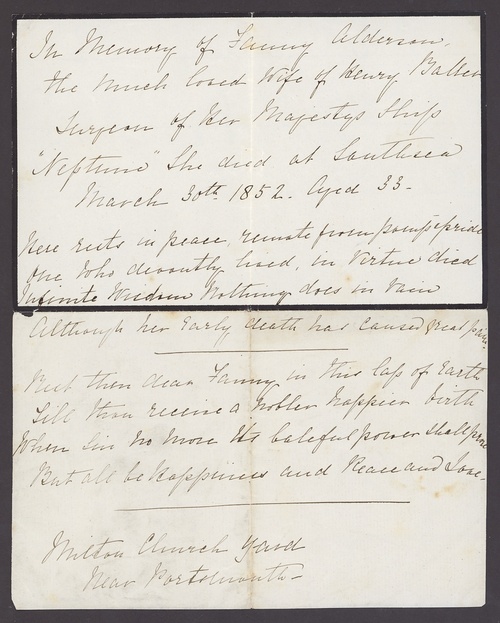 In Memory of Fanny Alderson,
the much loved Wife of Henry Baller
Surgeon of Her Majestys Ship
"Neptune" She died at Southsea
March 30th 1852. Aged 33-
Here rests in peace, remote from pomp & pride
One who devoutly lived, in Virtue died
Infinite Wisdom Nothing does in Vain
Although her Early death has caused great pain.
Rest then dear Fanny in this lap of Earth
Till thou receive a Nobler happier birth
When Sin no more its baleful power shall prove
But all be happiness and Peace and Love-
Milton Church Yard
Near Portsmouth-